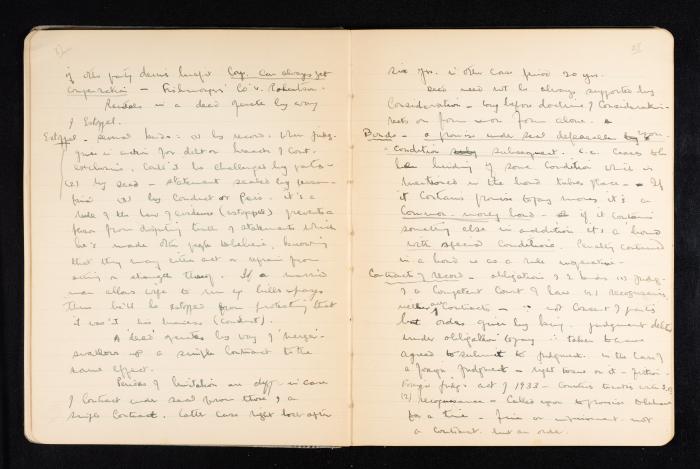 if other party derives benefit Coy. can always get
compensation - Fishmongers' Co v. Robertson.
Recitals in a deed operate by way
of Estoppel.
Estoppel - several kinds: (1) by record. When judg.
given in action for debt or breach of Cont.
conclusive. Can't be challenged by parties -
(2) by Deed - statement sealed by person
(3) by Conduct or Pais. it's a
rule of the law of evidence (estoppel) prevents a
person from disputing truth of statements which
he's made other people to believe, knowing
that they may either act or refrain from
acting on strength thereof. If a married
man allows wife to run up bills & pays
them he'll be estopped from protesting that
it wasn't his business (Conduct).
A deed operates by way of merger -
swallows up a simple Contract to the
same effect.
Periods of limitation are diff. in case
of Contract under seal from those of a
simple Contract. Latter case right lost after
six yrs. in other case period 20 yrs.
Deed need not be always supported by
Consideration - long before doctrine of Consideration
rests on form alone.
Bonds - a promise under seal defeasible upon
a Condition subsequent. i.e. ceases to
be binding if some Condition which is
mentioned in the bond takes place - If
it contains promise to pay money it's a
Common money bond - if it contains
something else in addition it's a bond
with special Conditions. Penalty contained
in a bond is as a rule
Contracts of Record - obligations of 2 kinds (1) Judg.
of a Competent Court of law (2) recognisances,
neither are Contracts - not Consent of parties
but orders given by King. judgment debtor
under obligation to pay - taken to have
agreed to submit to judgment. in the case of
a foreign judgment - right to sue on it - fiction.
Foreign judgs. act of 1933 -
(2) Recognisance - Called upon to promise to behave
for a time - fine or imprisonment. not
a Contract. but an order.